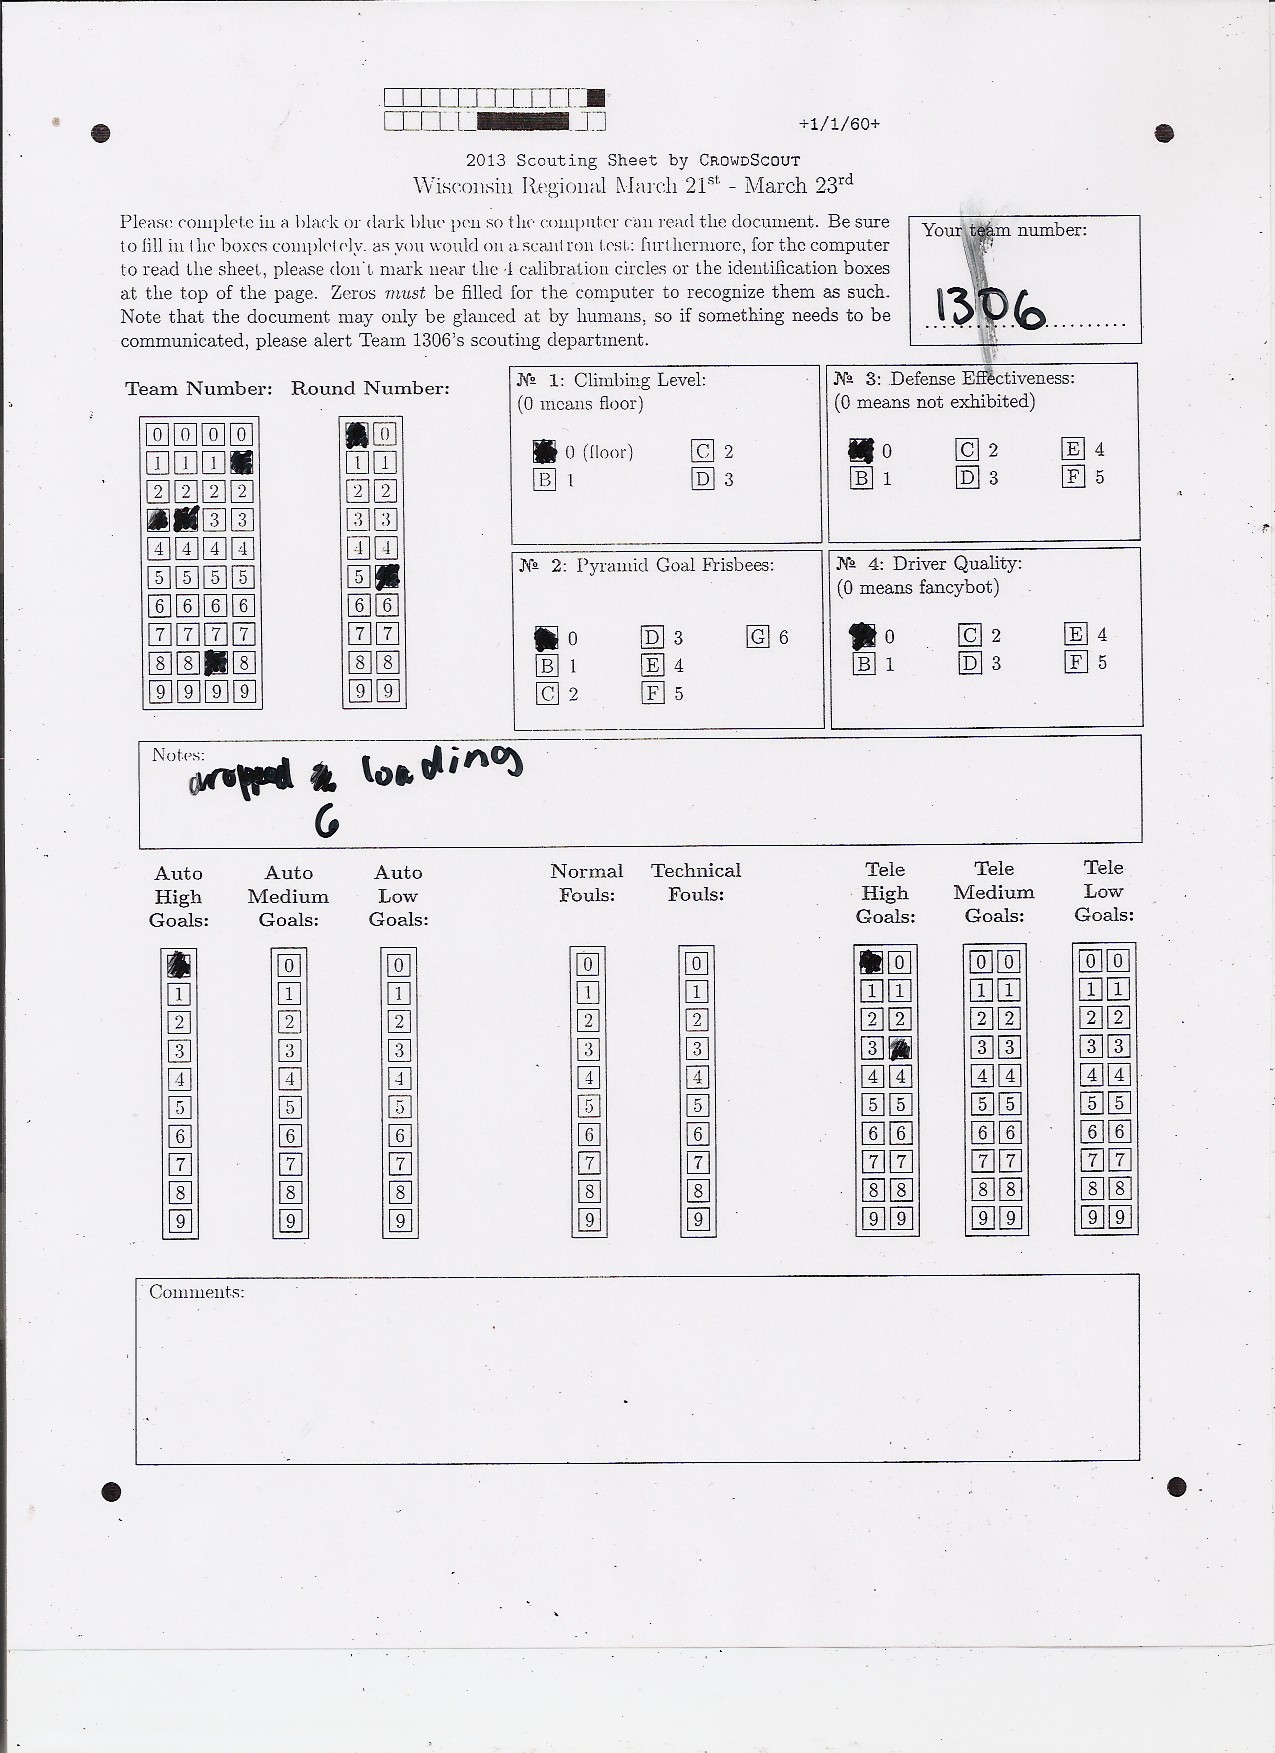 +1/1/60+
2013 Scouting Sheet by CROWDSCOUT
Wisconsin Regional March 21st - March 23rd
Please complete in a black or dark blue pen so the computer can read the document. Be sure
to fill in the boxes completely, as you would on a scantron test; furthermore, for the computer
to read the sheet, please don't mark near the 4 calibration circles or the identification boxes
at the top of the page. Zeros must be filled for the computer to recognize them as such.
Note that the document may only be glanced at by humans, so if something needs to be
communicated, please alert Team 1306's scouting department.
Your team number:
1306
Team Number: Round Number:
0 0 0 0 0
1 1 1 1 1
2 2 2 2 2 2
3 3 3 3
4 4 4 4 4 4
5 5 5 5 5
6 6 6 6 6 6
7 7 7 7 7 7
8 8 8 8 8
9 9 9 9 9 9
№ 1: Climbing Level:
(0 means floor)
0 (floor) C 2
B 1 D 3
№ 3: Defense Effectiveness:
(0 means not exhibited)
0 C 2 E 4
B 1 D 3 F 5
№ 2: Pyramid Goal Frisbees:
0 D 3 G 6
B 1 E 4
C 2 F 5
№ 4: Driver Quality:
(0 means fancybot)
0 C 2 E 4
B 1 D 3 F 5
Notes:
dropped loadings
6
Auto High Goals: Auto Medium Goals: Auto Low Goals: Normal Fouls: Technical Fouls: Tele High Goals: Tele Medium Goals: Tele Low Goals:
0 0 0 0 0 0 0 0 0
1 1 1 1 1 1 1 1 1 1 1
2 2 2 2 2 2 2 2 2 2 2
3 3 3 3 3 3 3 3 3 3
4 4 4 4 4 4 4 4 4 4 4
5 5 5 5 5 5 5 5 5 5 5
6 6 6 6 6 6 6 6 6 6 6
7 7 7 7 7 7 7 7 7 7 7
8 8 8 8 8 8 8 8 8 8 8
9 9 9 9 9 9 9 9 9 9 9
Comments: